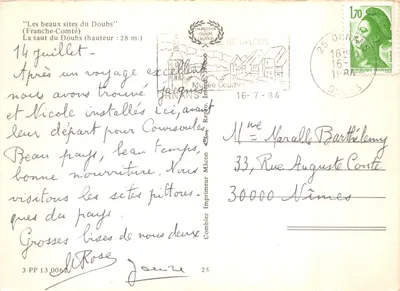 "Les beaux sites du Doubs"
(Franche-Comté)
Le saut du Doubs (hauteur : 28 m.)
14 juillet -
Après un voyage excellent
nous avons trouvé Jacques
et Nicole installés ici, avant
leur départ pour Courseulles.
Beau pays, beau temps,
bonne nourriture. Nous
visitons les sites pittores-
ques du pays.
Grosses bises de nous deux
Rose
3 PP 13 0060
25
Combier Imprimeur Mâcon
Musée Courbet
ORNANS
16-7-84
25 ORNANS
18
16-7
1984
DOUBS
1,70
Mme Marcelle Barthélemy
33, Rue Auguste Comte
30000 Nîmes